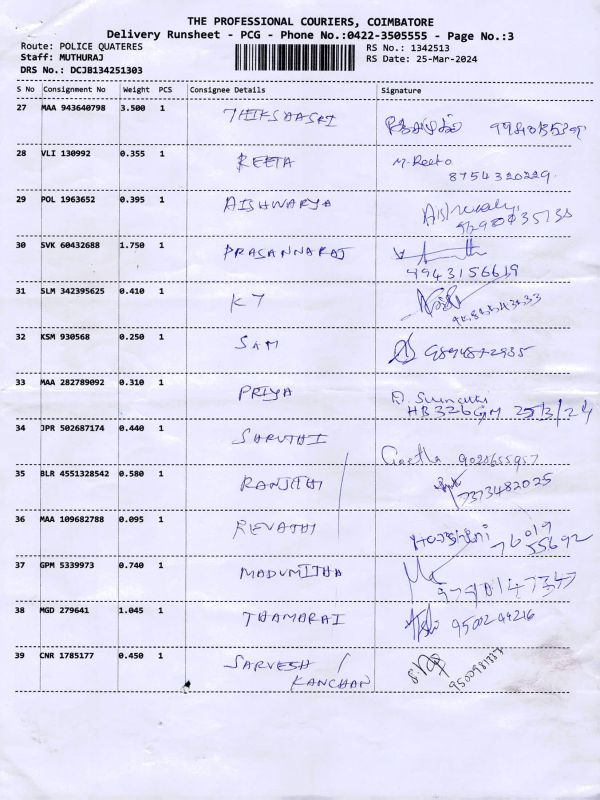 THE PROFESSIONAL COURIERS, COIMBATORE
Delivery Runsheet - PCG - Phone No.:0422-3505555 - Page No.:3
Route: POLICE QUATERES
RS No.: 1342513
Staff: MUTHURAJ
RS Date: 25-Mar-2024
DRS No.: DCJB134251303
S No Consignment No Weight PCS Consignee Details Signature
27 MAA 943640798 3.500 1
28 VLI 130992 0.355 1 REETA M. Reeta
8754320229
29 POL 1963652 0.395 1 AISHWARYA
30 SVK 60432688 1.750 1 PRASANNARAJ
9943156619
31 SLM 342395625 0.410 1 KT
32 KSM 930568 0.250 1 SAM 9894872935
33 MAA 282789092 0.310 1 PRIYA
HB326GM 25/3/24
34 JPR 502687174 0.440 1 SHRUTHI
35 BLR 4551328542 0.580 1 RANJITH
7373482025
36 MAA 109682788 0.095 1 REVATHI
76019
55692
37 GPM 5339973 0.740 1 MADUMITHA
38 MGD 279641 1.045 1 THAMARAI 9500244216
39 CNR 1785177 0.450 1 SARVESH /
KANCHAN